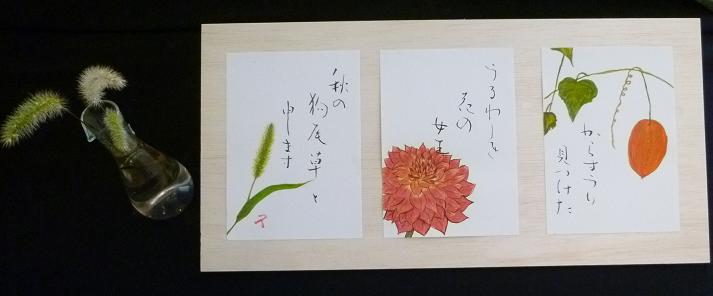 からすうり
見つけた
うるわしき
花の
女王
秋の
狗尾草と
申します